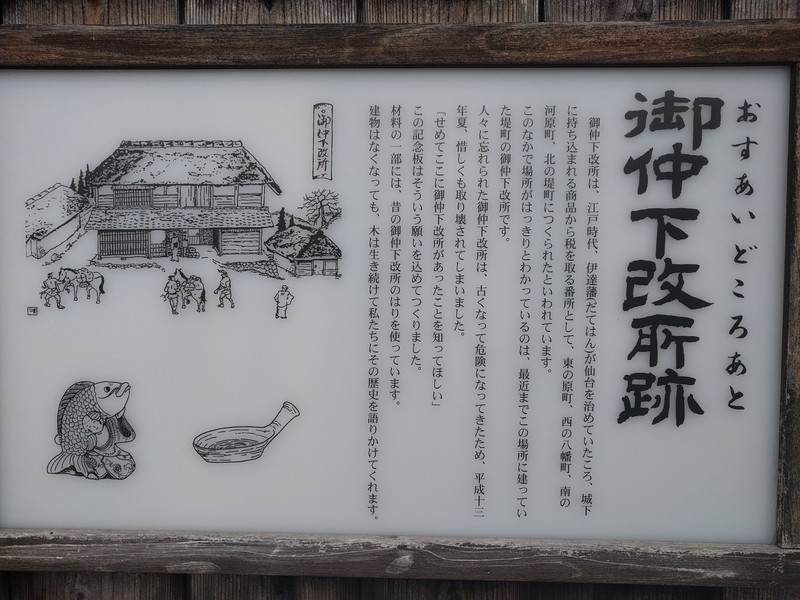 おすあいどころあと
御仲下改所跡
御仲下改所は、江戸時代、伊達藩(だてはん)が仙台を治めていたころ、城下
に持ち込まれる商品から税を取る番所として、東の原町、西の八幡町、南の
河原町、北の堤町につくられたといわれています。
このなかで場所がはっきりとわかっているのは、最近までこの場所に建ってい
た堤町の御仲下改所です。
人々に忘れられた御仲下改所は、古くなって危険になってきたため、平成十三
年夏、惜しくも取り壊されてしまいました。
「せめてここに御仲下改所があったことを知ってほしい」
この記念板はそういう願いを込めてつくりました。
材料の一部には、昔の御仲下改所のはりを使っています。
建物はなくなっても、木は生き続けて私たちにその歴史を語りかけてくれます。
御仲下改所